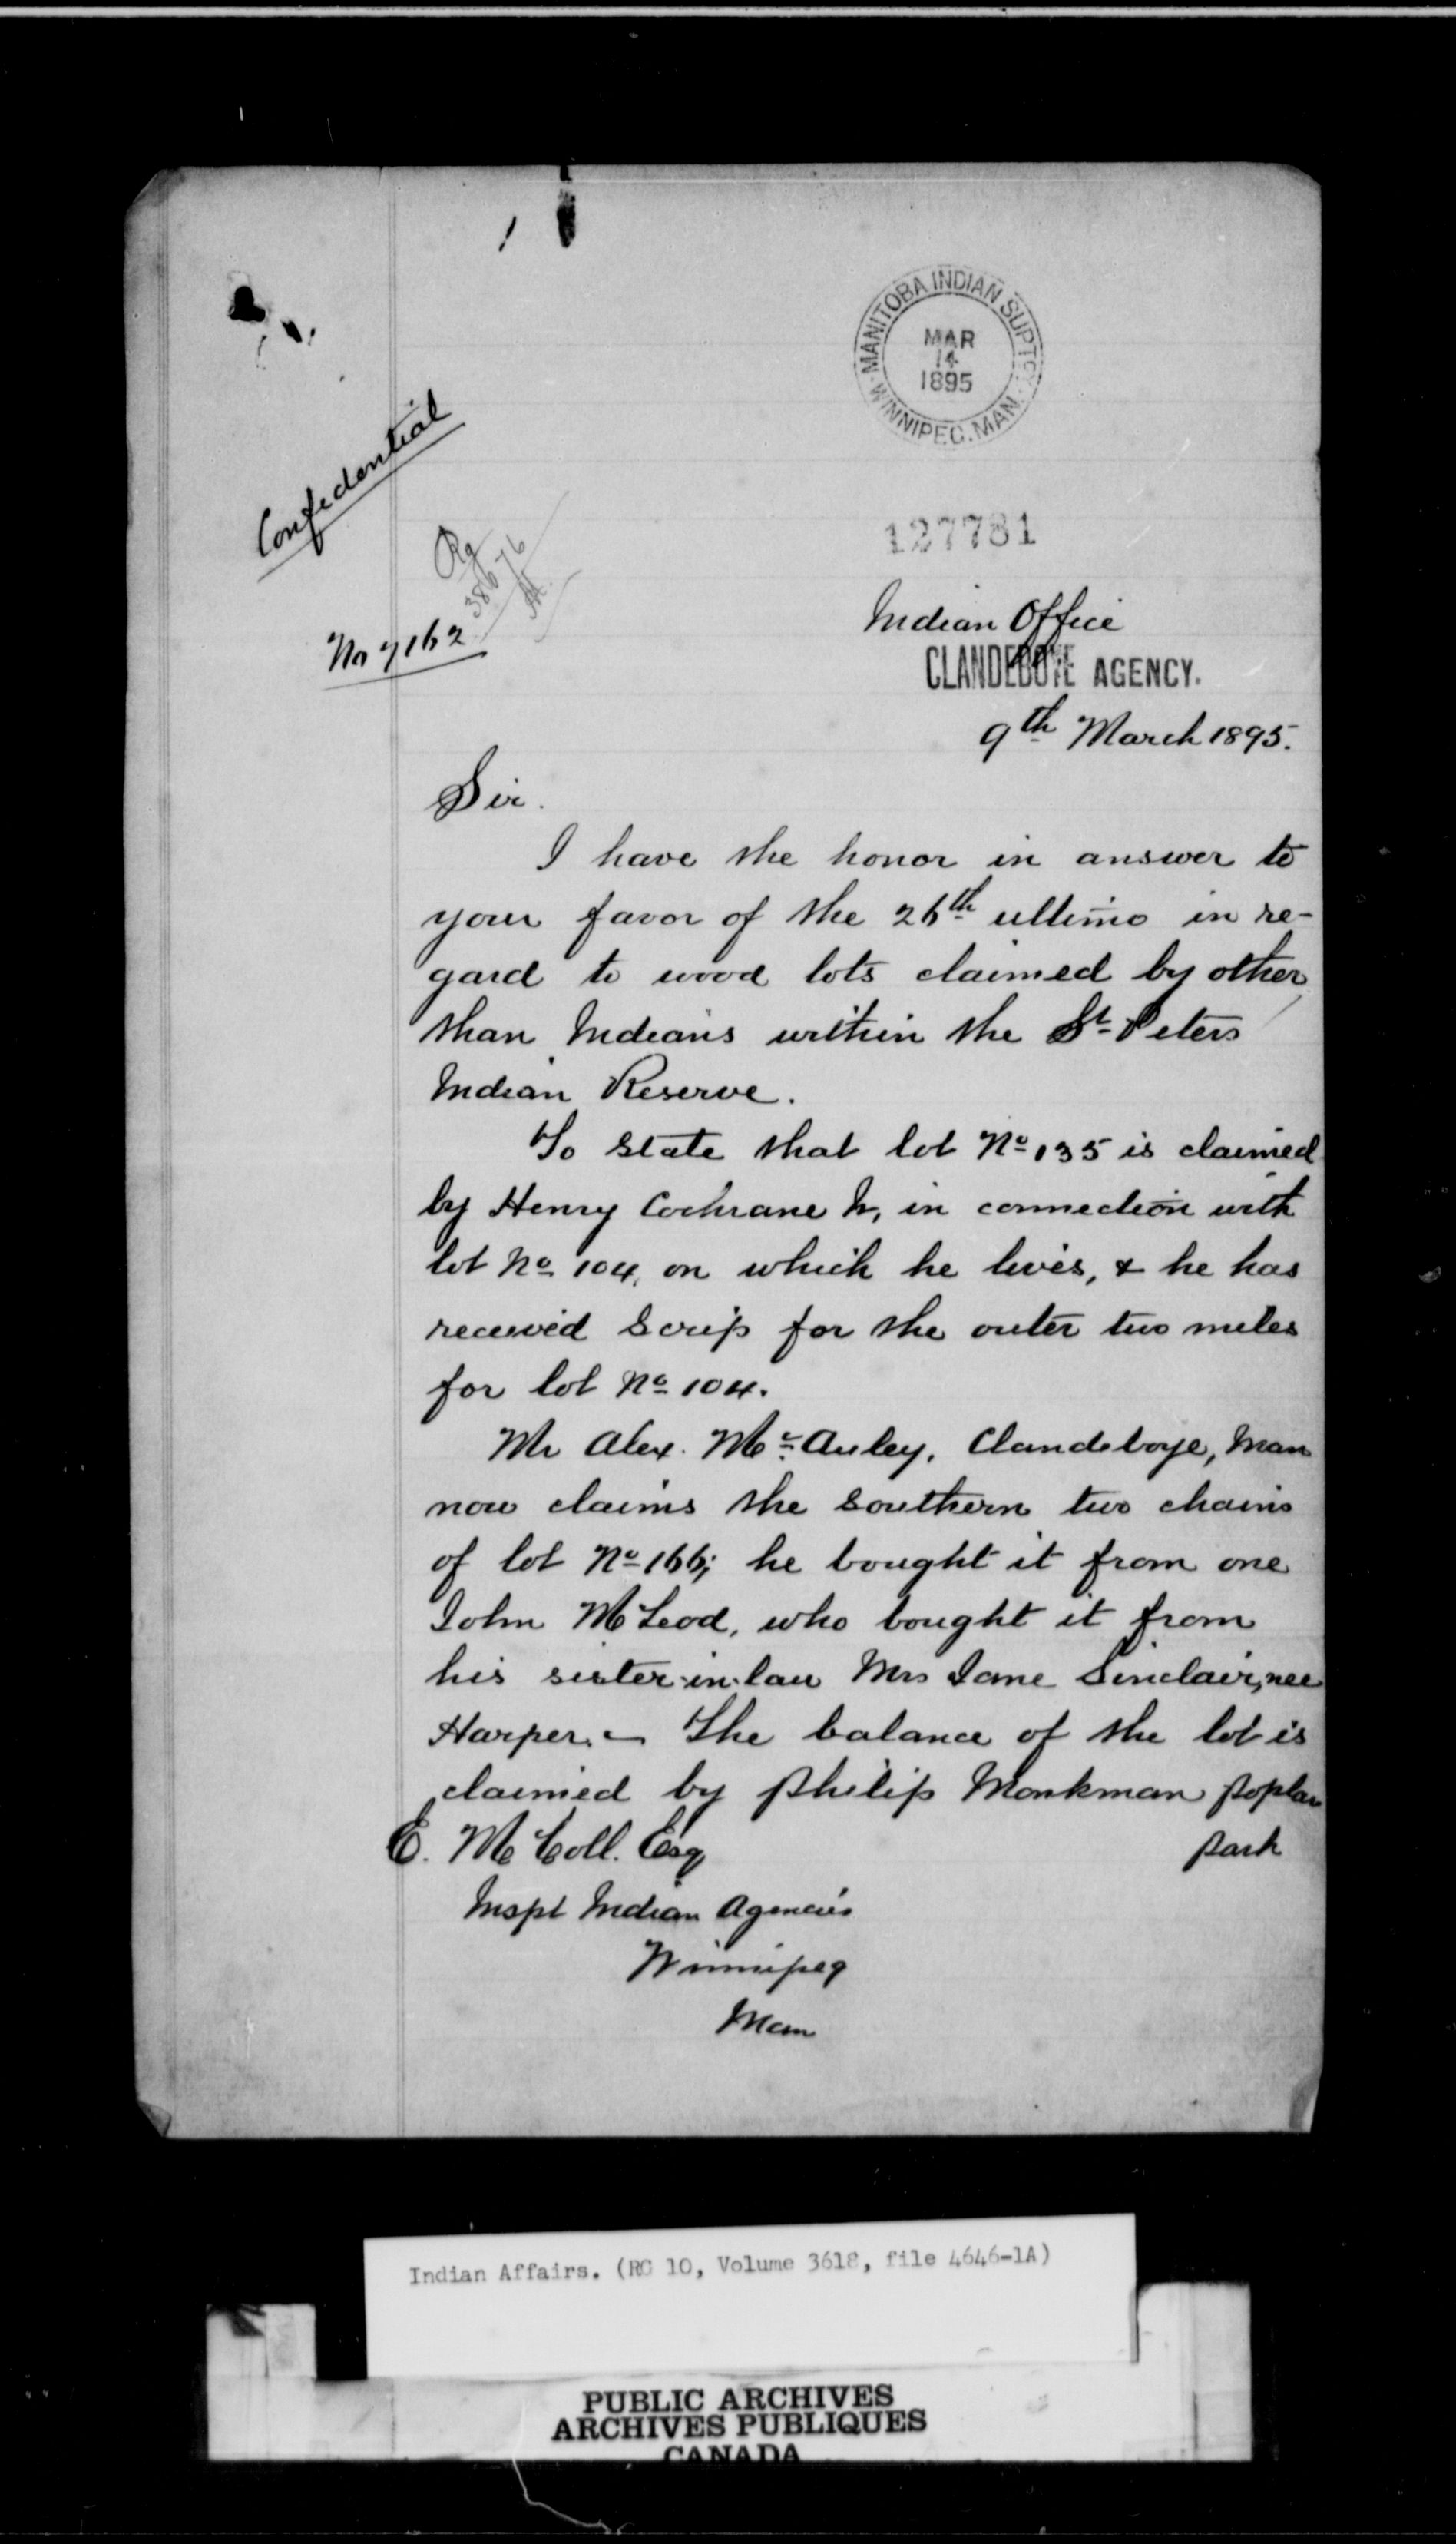 MANITOBA INDIAN SUPTCY.
MAR
14
1895
WINNIPEG. MAN.
Confidential
127781
Rg
38676
No 7162
Indian Office
CLANDEBOYE AGENCY.
9th March 1895.
Sir.
I have the honor in answer to
your favor of the 26th ultimo in re-
gard to wood lots claimed by other
than Indians within the St Peters
Indian Reserve.
To state that lot No 135 is claimed
by Henry Cochrane Sr, in connection with
lot No 104, on which he lives, & he has
received Scrip for the outer two miles
for lot No 104.
Mr Alex. McAuley, Clandeboye, Man
now claims the Southern two chains
of lot No 166; he bought it from one
John McLeod, who bought it from
his sister-in-law Mrs Jane Sinclair, nee
Harper. - The balance of the lot is
claimed by Philip Monkman Poplar
Park
E. McColl. Esq
Inspt Indian Agencies
Winnipeg
Man
Indian Affairs. (RG 10, Volume 3618, file 4646-1A)
PUBLIC ARCHIVES
ARCHIVES PUBLIQUES
CANADA